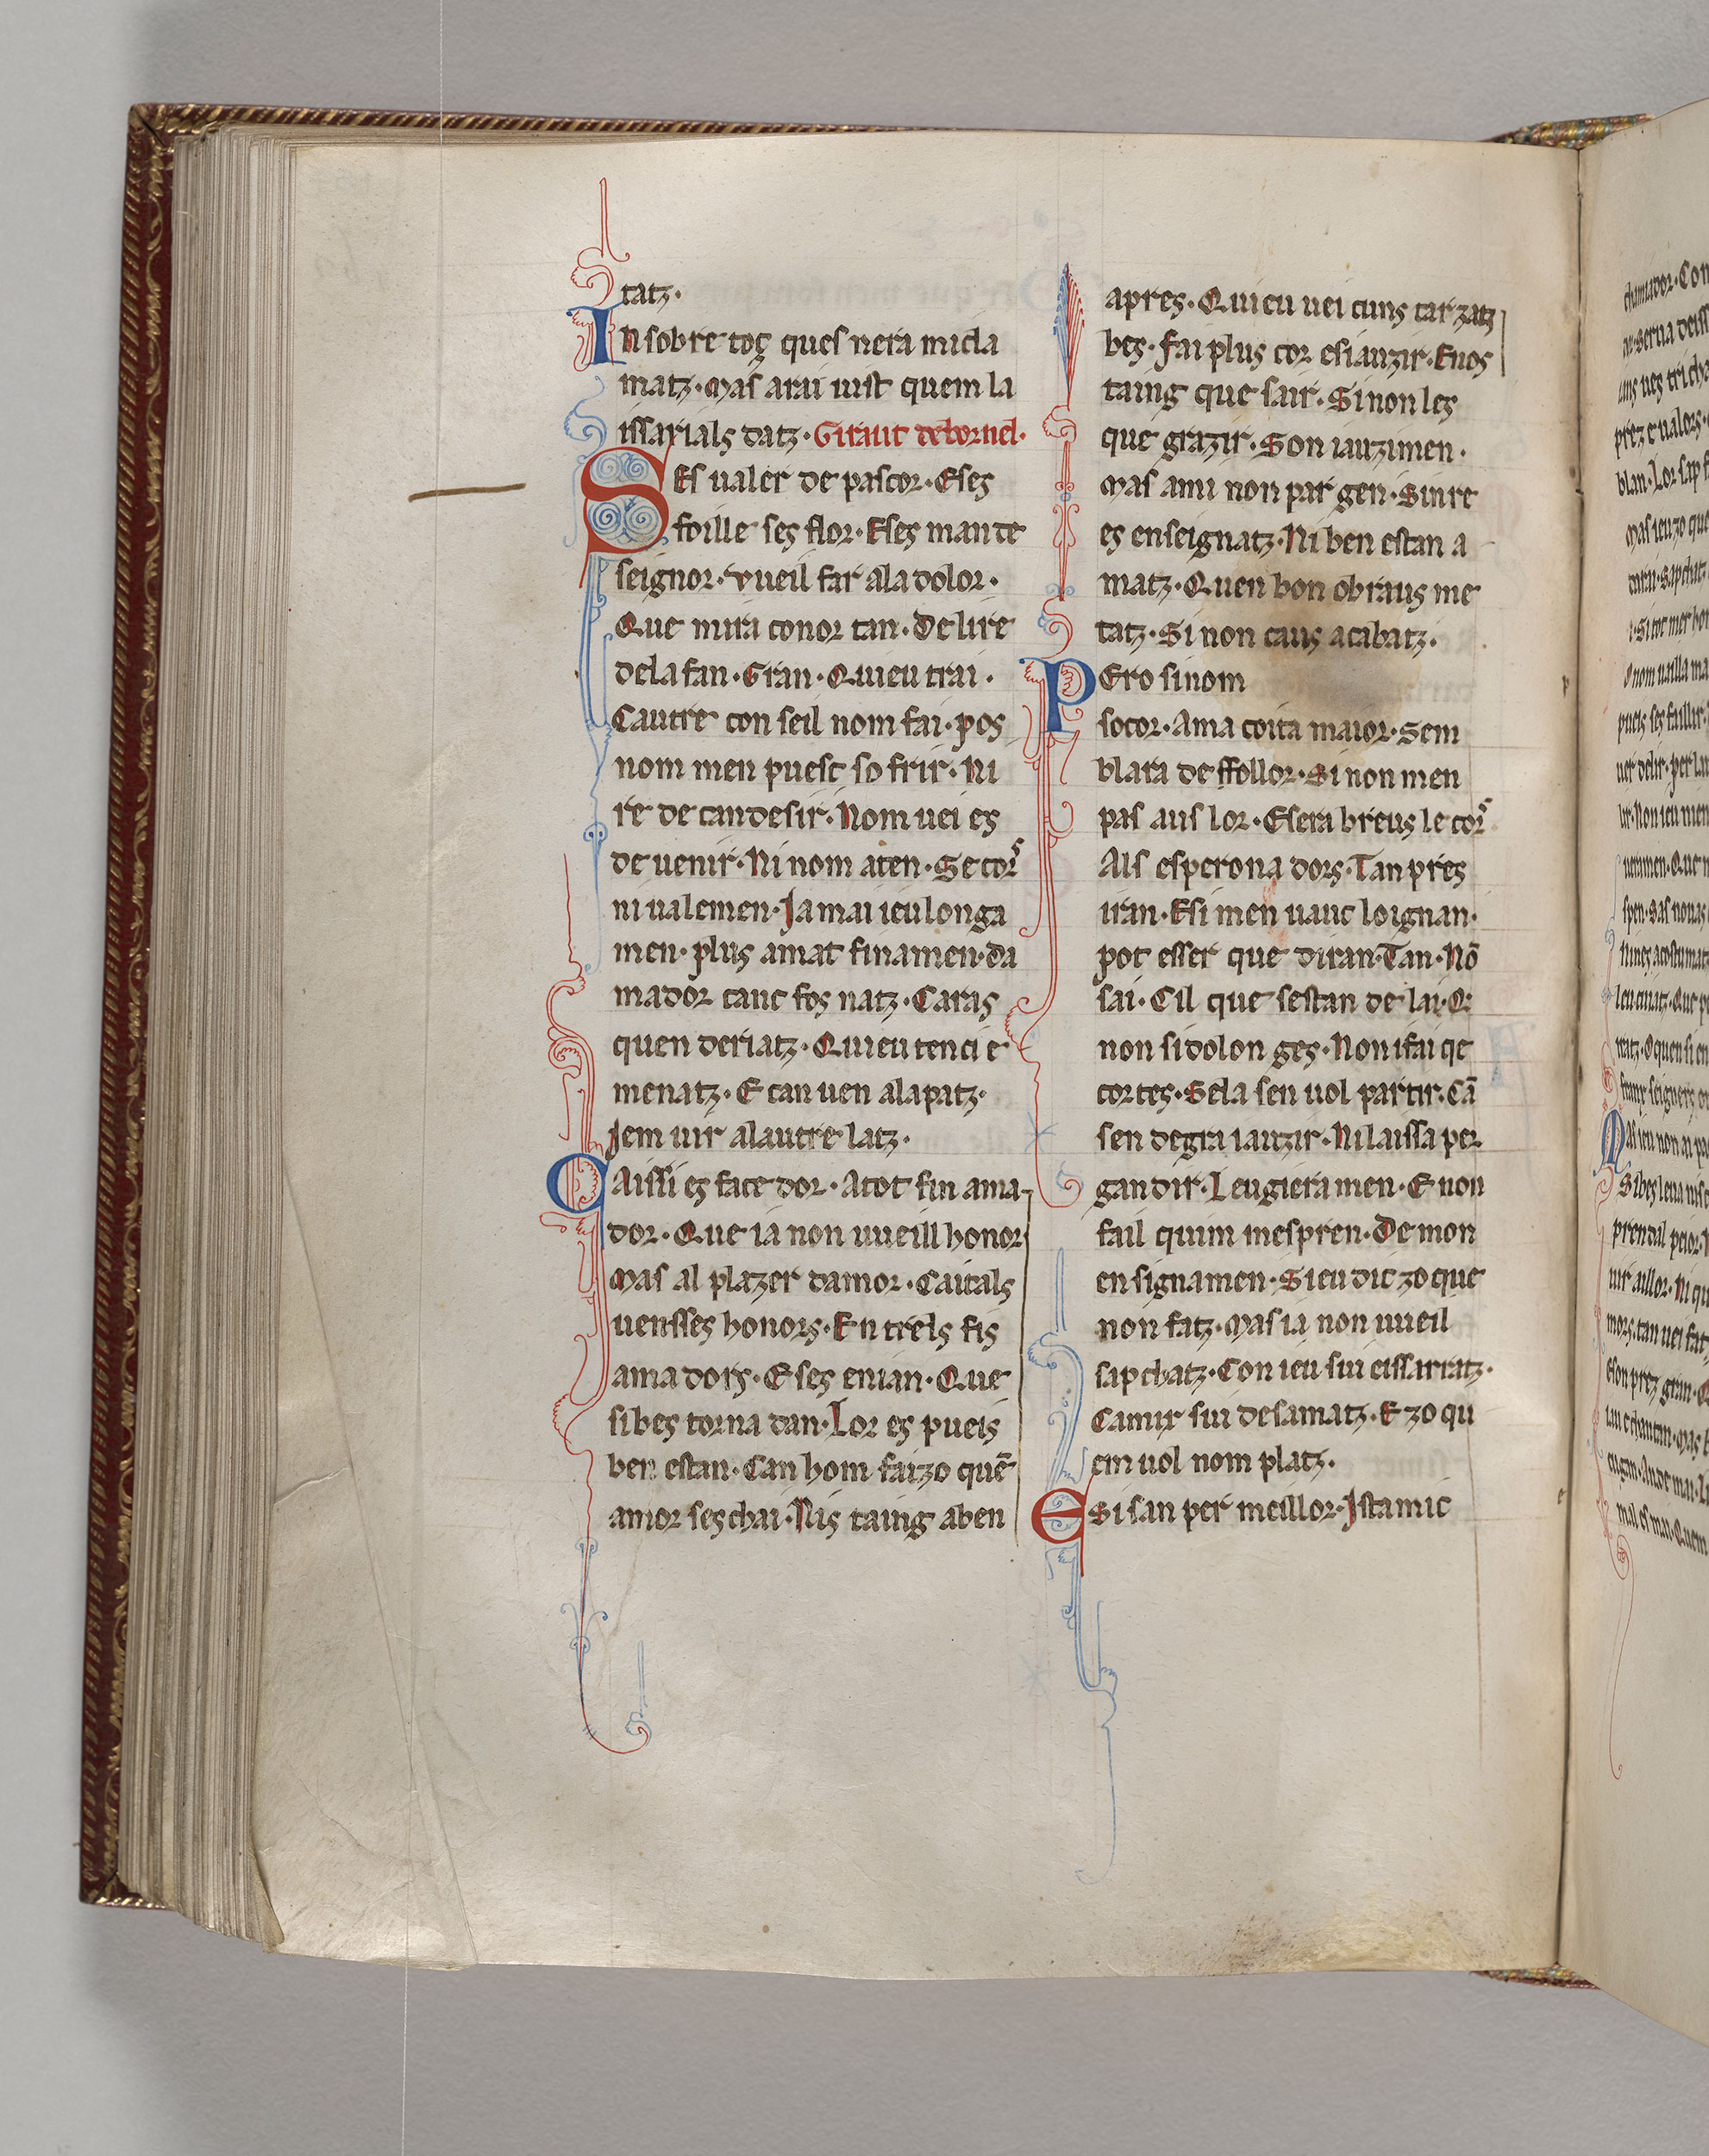 tatz·
In sobre toç ques nera micla
matz· Mas arai uist quem la
issarials datz· Giraut debornel·
SEs ualer de pascor· Eses
foille ses flor· Eses man de
seignor· vueil far ala dolor·
Que mira conor tan· De lire
dela fan· Gran· Quieu trai·
Cautre con seil nom fai· pos
nom men puesc so frir· Ni
re de can desir· Nom uei es
de uenir· Ni nom aten· Se cors
ni ualemen· Ja mai ieu longa
men· plus amat finamen· da
mador canc fos natz· Caras
quen deriatz· Quieu tenc i e
menatz· E can uen alapatz·
Jem uir alautre latz·
CAissi es face dor· Atot fin ama
dor· Que ia non uueill honor
Mas al plazer damor· Caitals
uensses honors· Entrels fis
amadors· E ses enian· Que
sibes torna dan· Lor es pueis
ben estan· Can hom faizo quē
amor seschai· Nis taing aben
apres· Quieu uei cuns tarzatz
bes· fai plus cor esiauzir· Enos
taing que sair· Sinon les
que grazir· Son iauzimen·
Mas ami non par gen· Sinre
es enseignatz· Ni ben estan a
matz· Quen bon obraus me
tatz· Si non caus acabatz·
PEro sinom
socor· Ama coita maior· Sem
blara de ffollor· Si non men
pas aus lor· Esera breus le cors
Als esperona dors· Tan pres
uan· Esi men uauc loignan·
pot esser que diran· Tan· Nō
sai· Cil que sestan de lai· Q
non sidolon ges· Non i fai qe
cortes· Sela sen uol partir· Cā
sen degra iauzir· Ni laissa per
gandir· Leugieramen· E non
fail quim mespren· De mon
ensignamen· Sieu dic zo que
non fatz· Mas ia non uueil
sapchatz· Con ieu sui eissarratz·
Camix sui desamatz· E zo qu
em uol nom platz·
ESi san per meillor· Jstamic